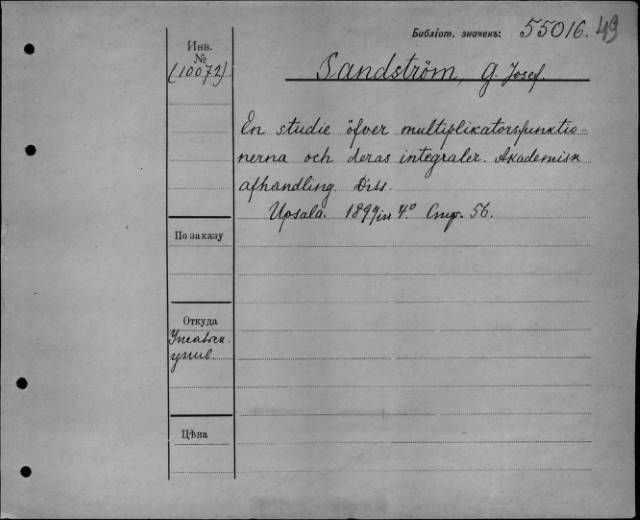 Библіот. значенъ: 55016. 49
Инв.
№
(10072)
Sandström, G. Josef.
En studie öfver multiplikatorsfunktio-
nerna och deras integraler. Akademisk
afhandling. Diss.
Upsala. 1899 in 4° Стр. 56.
По заказу
Откуда
Упсальск.
унив.
Цѣна